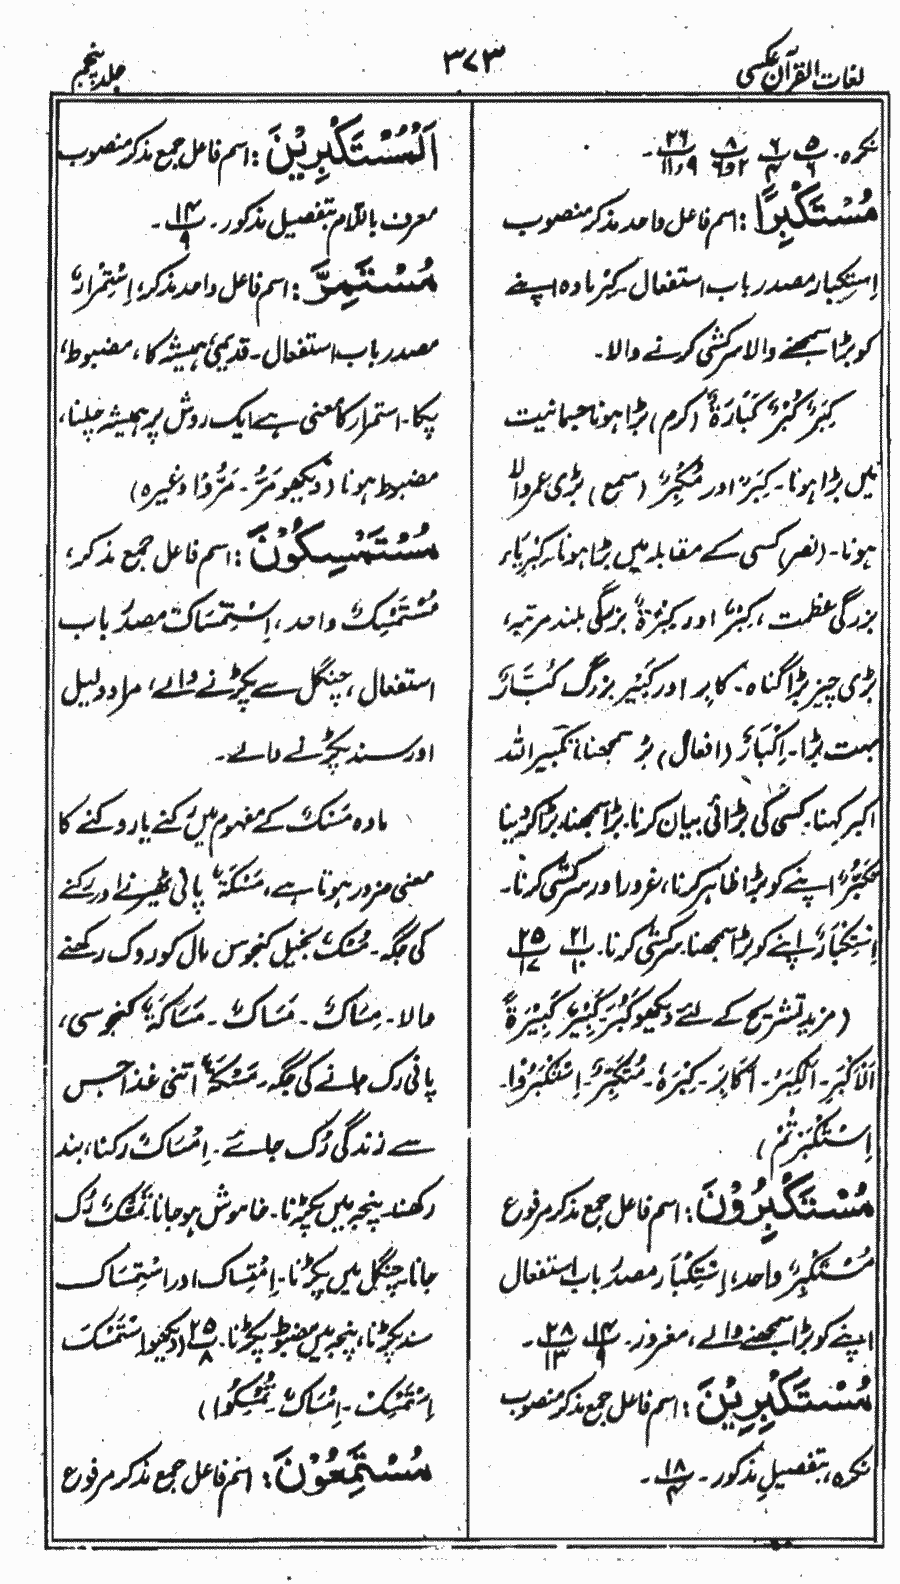 لغات القرآن عکسی
۳۷۳
جلد پنجم
نکرہ۔ ۵/۶ ۶/۴ ۸/۲و۶ ۲۶/۹و۱۱۔
مُسْتَکْبِرًا: اسم فاعل واحد مذکر منصوب
اِسْتِکْبَار مصدر باب استفعال۔ کِبْر مادہ اپنے
کو بڑا سمجھنے والا سرکشی کرنے والا۔
کِبَرٌ کُبْرٌ کَبَارَۃٌ (کرم) بڑا ہونا جسمانیت
میں بڑا ہونا۔ کِبَرٌ اور مَکْبِرٌ (سمع) بڑی عمر والا
ہونا۔ (نصر) کسی کے مقابلہ میں بڑا ہونا۔ کِبْرِیَاء
بزرگی عظمت، کِبْرٌ اور کِبْرَۃٌ بزرگی بلند مرتبہ،
بڑی چیز بڑا گناہ۔ کَابِر اور کَبِیْر بزرگ کُبَّارٌ
بہت بڑا۔ اِکْبَارٌ (افعال) بڑا سمجھنا، تکبیر اللہ
اکبر کہنا۔ کسی کی بڑائی بیان کرنا۔ بڑا سمجھنا، بڑا کر دینا
تَکَبُّرٌ اپنے کو بڑا ظاہر کرنا، غرور اور سرکشی کرنا۔
اِسْتِکْبَارٌ اپنے کو بڑا سمجھنا۔ سرکشی کرنا۔ ۲۱/۱۰ ۲۵/۱۷
(مزید تشریح کے لئے دیکھو کَبُرَ کَبِیْرٌ کَبِیْرَۃٌ
اَلْاَکْبَرِ۔ اَلْکِبَرُ۔ اَکَابِرَ۔ کِبْرَہٗ۔ مُتَکَبِّرٌ۔ اِسْتَکْبَرُوْا۔
اِسْتَکْبَرْتُمْ)
مُسْتَکْبِرُوْنَ: اسم فاعل جمع مذکر مرفوع
مُسْتَکْبِرٌ واحد، اِسْتِکْبَار مصدر باب استفعال
اپنے کو بڑا سمجھنے والے، مغرور۔ ۱۴/۹ ۲۸/۱۳۔
مُسْتَکْبِرِیْنَ: اسم فاعل جمع مذکر منصوب
نکرہ، بتفصیل مذکور۔ ۱۸/۴۔
اَلْمُسْتَکْبِرِیْنَ: اسم فاعل جمع مذکر منصوب
معرف باللّام بتفصیل مذکور۔ ۱۴/۹۔
مُسْتَمِرٌّ: اسم فاعل واحد مذکر، اِسْتِمْرَارٌ
مصدر باب استفعال۔ قدیمی، ہمیشہ کا، مضبوط،
پکا۔ استمرار کا معنی ہے ایک روش پر ہمیشہ چلنا،
مضبوط ہونا (دیکھو مَرَّ۔ مَرُّوْا وغیرہ)
مُسْتَمْسِکُوْنَ: اسم فاعل جمع مذکر،
مُسْتَمْسِکٌ واحد، اِسْتِمْسَاکٌ مصدر باب
استفعال، چنگل سے پکڑنے والے، مراد دلیل
اور سند پکڑنے والے۔
مادہ مَسْکٌ کے مفہوم میں رُکنے یا روکنے کا
معنی ضرور ہونا ہے، مَسَکَۃٌ پانی ٹھہرنے اور رکنے
کی جگہ۔ مُسُکٌ بخیل کنجوس مال کو روک رکھنے
والا۔ مِسَاکٌ۔ مَسَاکٌ۔ مَسَاکَۃٌ کنجوسی،
پانی رک جانے کی جگہ۔ مَسْکَۃٌ اتنی غذا جس
سے زندگی رُک جائے۔ اِمْسَاکٌ رکنا، بند
رکھنا۔ پنجہ میں پکڑنا۔ خاموش ہو جانا تَمَسُّکٌ رُک
جانا۔ چنگل میں پکڑنا۔ اِمْتِسَاک اور اسْتِمْسَاک
سند پکڑنا، پنجہ میں مضبوط پکڑنا۔ ۲۵/۸ (دیکھو اسْتَمْسَکَ
اِسْتَمْسِکْ۔ اِمْسَاکٌ۔ تُمْسِکُوْا)
مُسْتَمِعُوْنَ: اسم فاعل جمع مذکر مرفوع